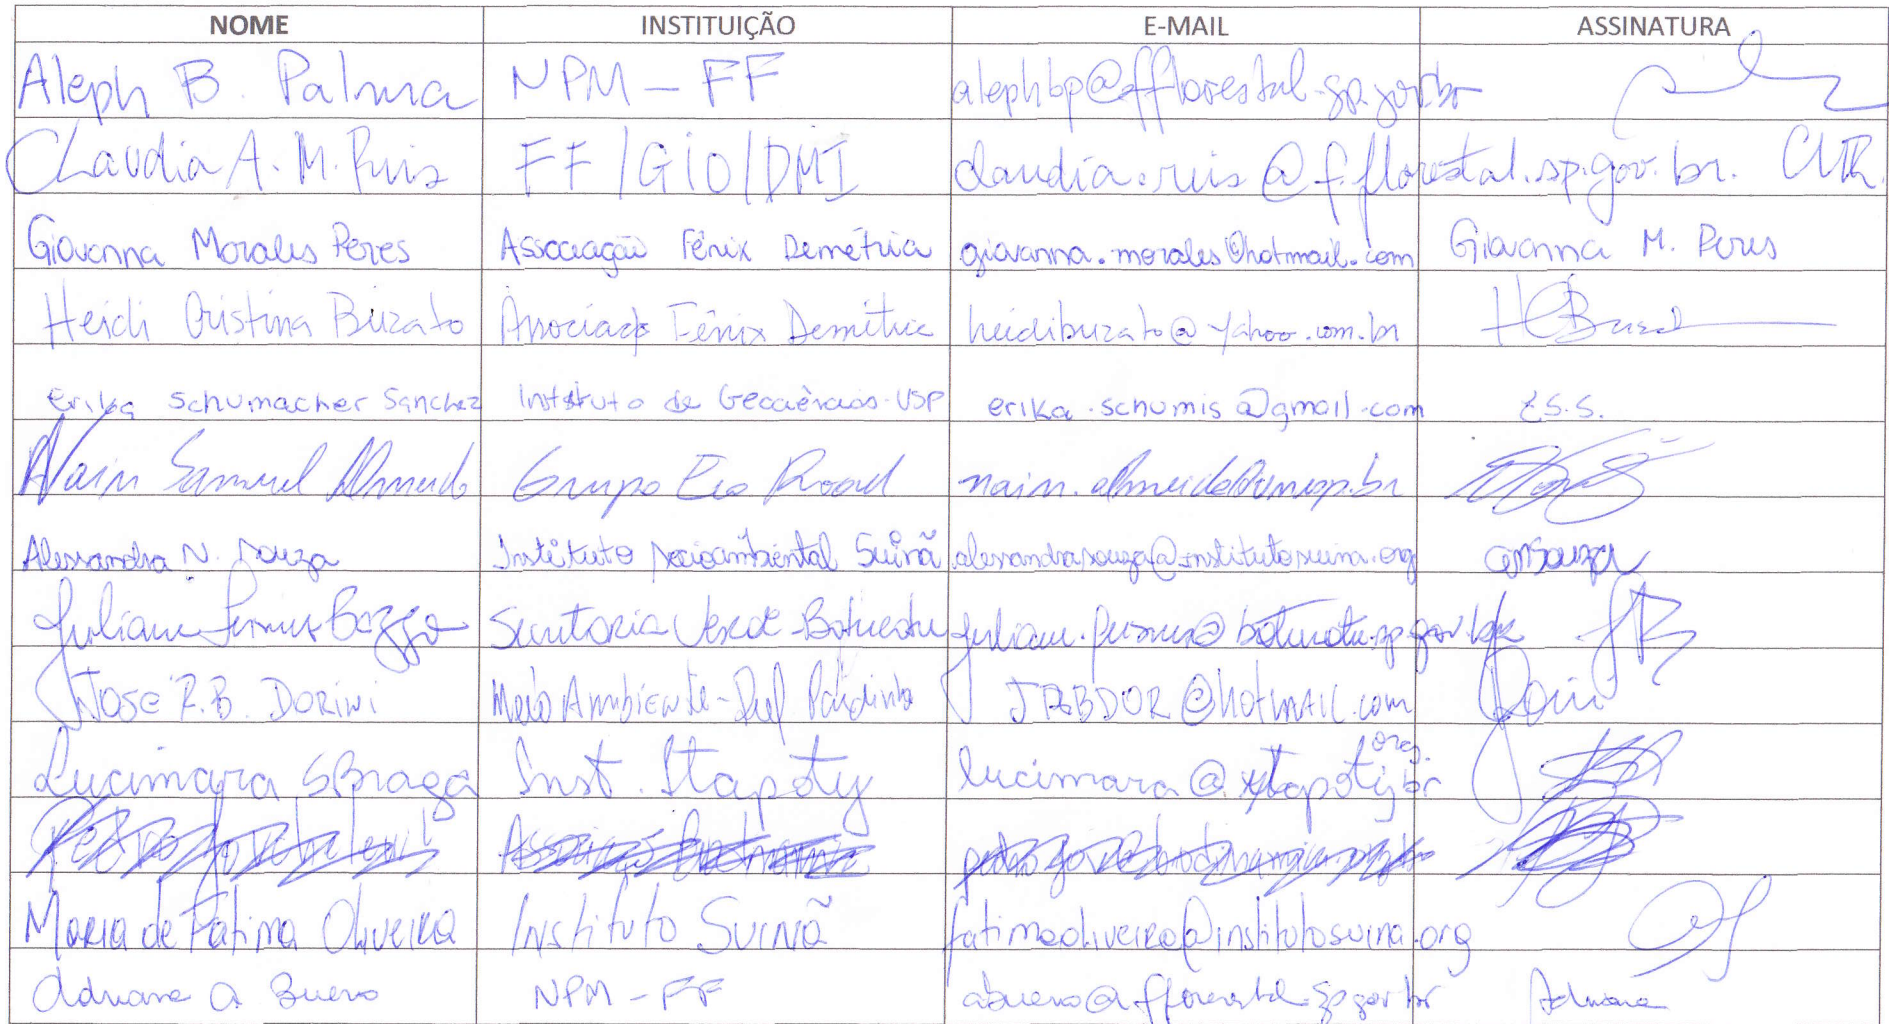 NOME INSTITUIÇÃO E-MAIL ASSINATURA
Aleph B. Palma NPM - FF alephbp@fflorestal.sp.gov.br
Claudia A. M. Ruis FF/GIO/DMI claudia.ruis@fflorestal.sp.gov.br. CMR.
Giovanna Morales Peres Associação Fênix Demétria giovanna.morales@hotmail.com Giovanna M. Peres
Heidi Cristina Buzato Associação Fênix Demétria heidibuzato@yahoo.com.br HCBuzat
Erika Schumacher Sanchez Instituto de Geociências-USP erika.schumis@gmail.com E.S.S.
Naim Samuel Almeida Grupo Eco Road naim.almeida@unesp.br
Alessandra N. Souza Instituto Socioambiental Suinã alessandrasouza@institutosuina.org anSouza
Juliam Secretaria Verde - Botucatu
JOSE R.B. DORINI Meio Ambiente - Pref Pardinho JRBDOR@hotmail.com
Lucimara SBraga Inst. Itapoty lucimara@itapoty.org.br
Maria de Fátima Oliveira Instituto Suinã fatimaoliveira@institutosuina.org
Adriana A. Bueno NPM - FF abueno@fflorestal.sp.gov.br Adriana